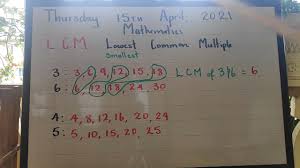 Thursday 15th April, 2021
Mathematics
L C M Lowest Common Multiple
Smallest
3: 3, 6, 9, 12, 15, 18 LCM of 3/6 = 6
6: 6, 12, 18, 24, 30
4: 4, 8, 12, 16, 20, 24
5: 5, 10, 15, 20, 25